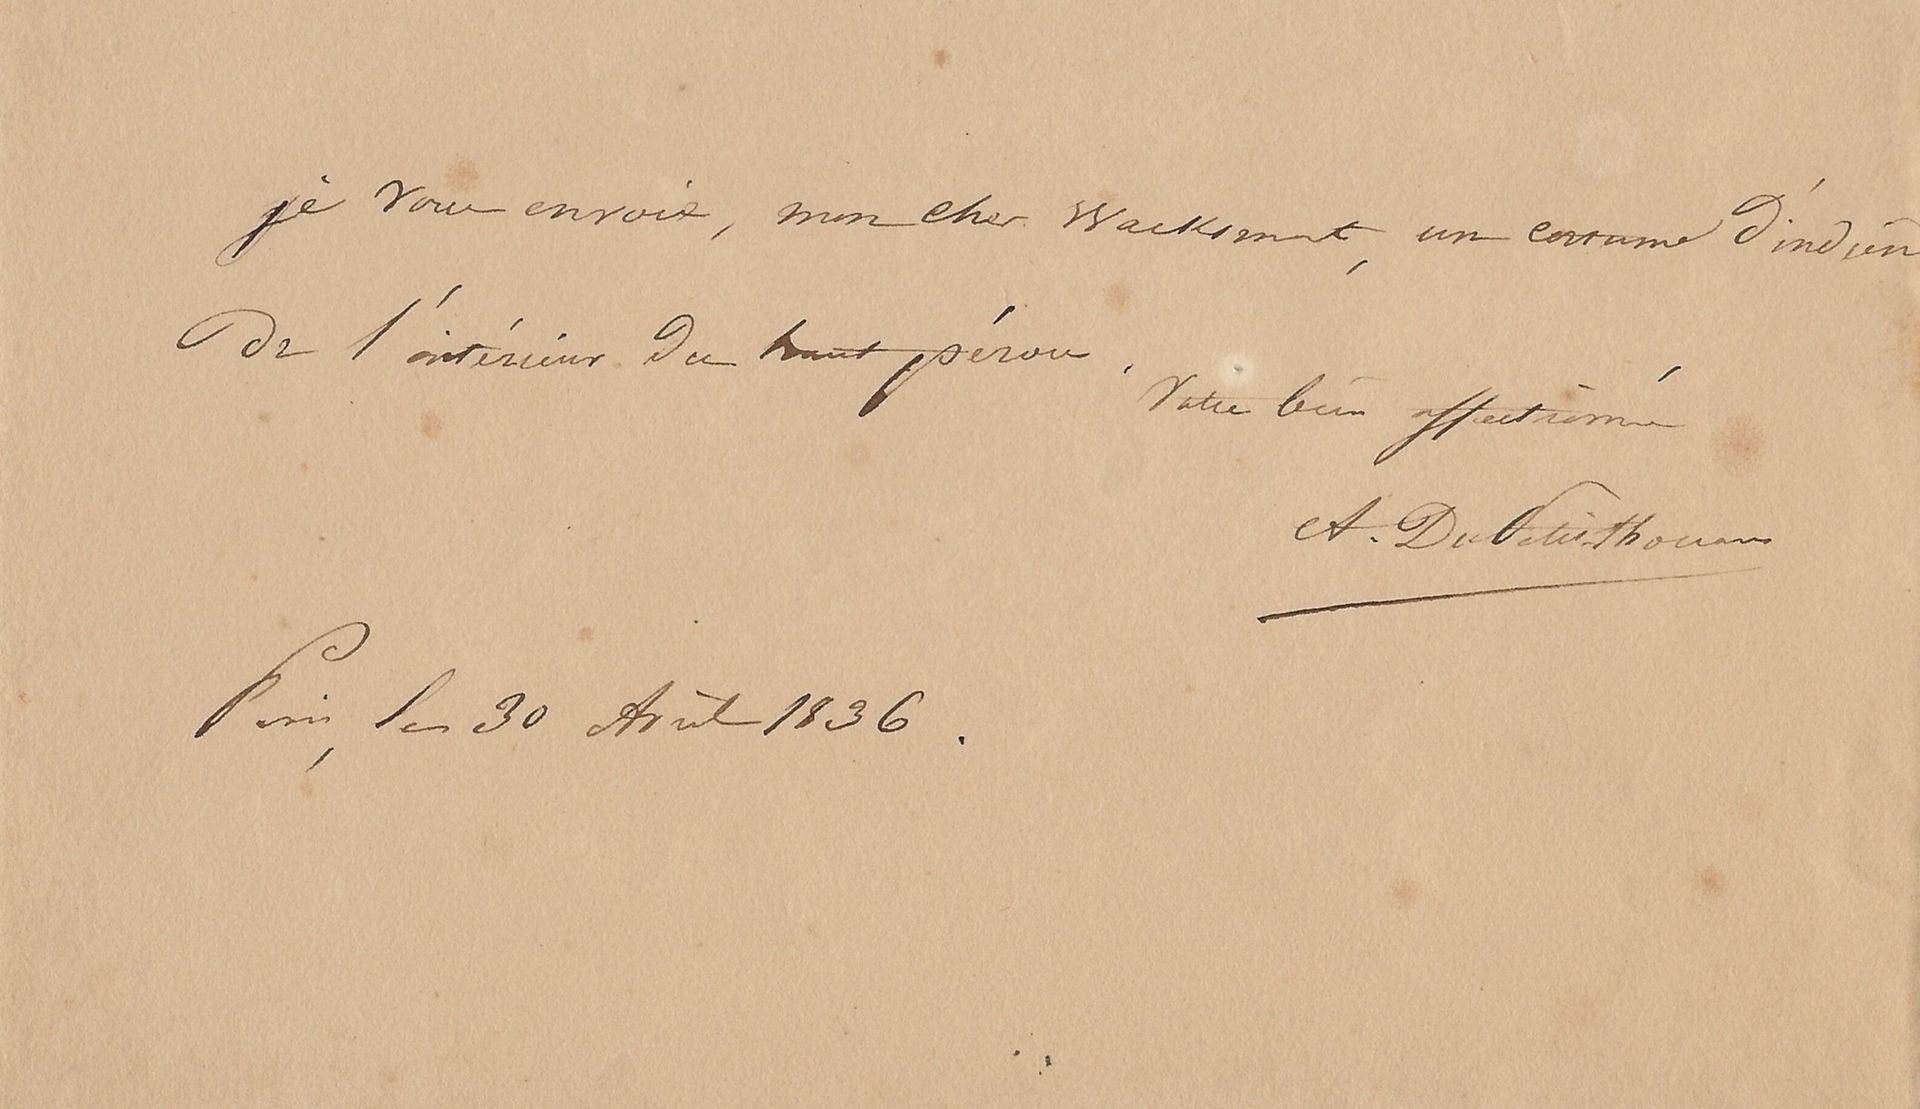 je vous envoie, mon cher Wacksmut, un costume d'indien
de l'intérieur du haut pérou.
Votre bien affectionné
A. Du Petit-Thouars
Paris, le 30 Août 1836.